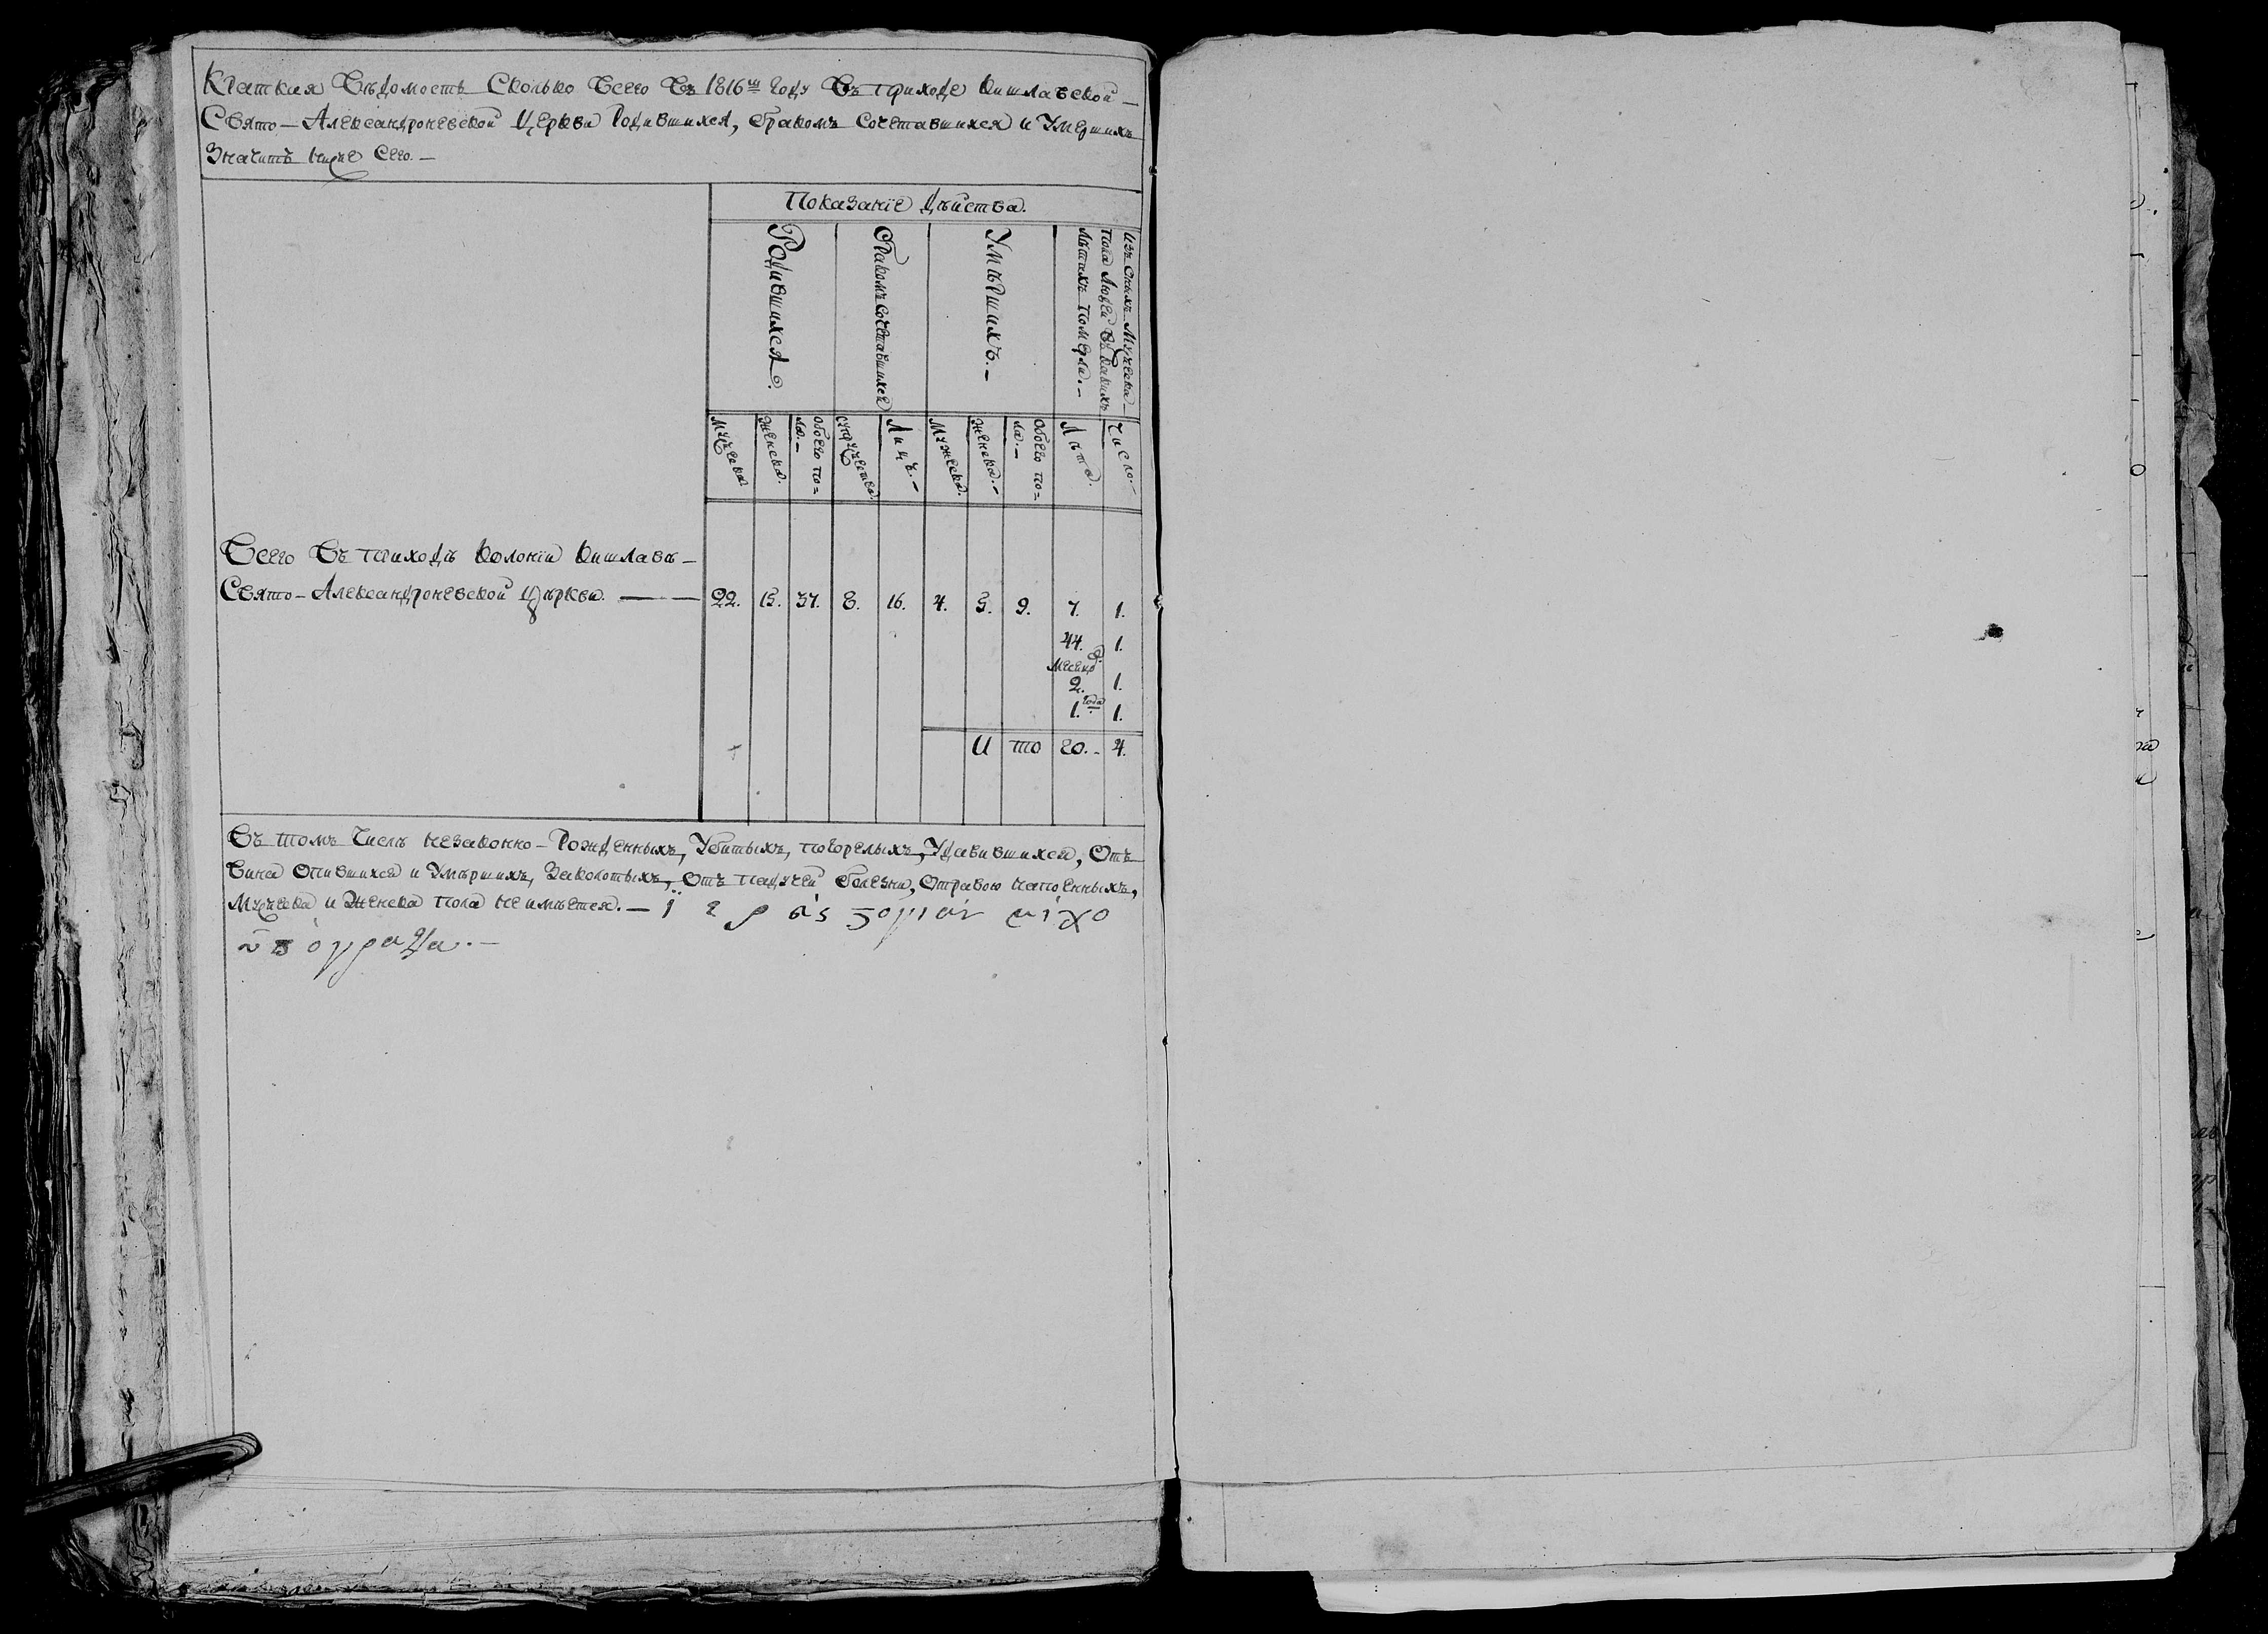 Краткая Вѣдомость Сколько Всего Въ 1816ᵐ Году Въ приходе Кишлавской —
Свято — Александроневской Церкви Родившихся, бракомъ Сочетавшихся и Умершихъ
Значитъ ниже Сего. —
Показаніе Дѣйства.
Родившихся.
Бракомъ сочетавшихся
Умѣршихъ. —
изъ онихъ Мужеска —
пола людей Въ Какихъ
Лѣтахъ померли. —
Мужеска.
Женска.
обоего по=
ла. —
супружества.
Лицъ. —
Мужеска.
Женска. —
обоего по=
ла. —
Лѣта.
Число. —
Всего Въ приходѣ Колоніи Кишлавѣ —
Свято — Александроневской Цѣркви. — 22. 15. 37. 8. 16. 4. 5. 9. 7. 1.
44. 1.
Месяцо.
2. 1.
1. года 1.
И то го. - 4.
Въ томъ Числѣ незаконно — Рожденныхъ, Убитыхъ, погорелыхъ, Удавившихся, Отъ
Вина Опившихся и Умѣршихъ, Заколотыхъ, Отъ падучей болезни, Отравою напоенныхъ,
Мужеска и Женска пола не имѣется. —
ὑπόγραψα. —